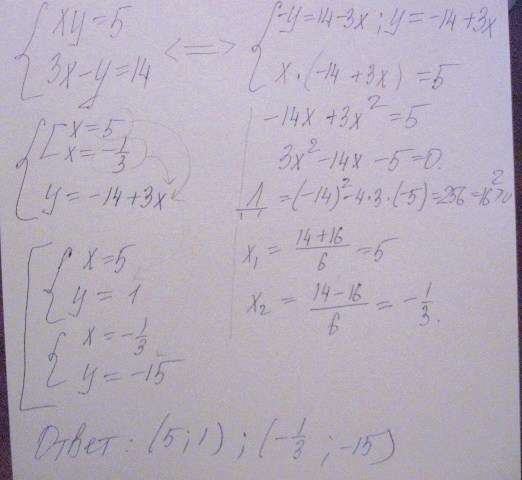 { xy = 5
3x - y = 14 <=>
{ -y = 14 - 3x ; y = -14 + 3x
x · (-14 + 3x) = 5
-14x + 3x² = 5
3x² - 14x - 5 = 0.
Д = (-14)² - 4·3·(-5) = 256 = 16² > 0
x₁ = (14+16)/6 = 5
x₂ = (14-16)/6 = -1/3.
{ [ x = 5
x = -1/3
y = -14 + 3x
[ { x = 5
y = 1
{ x = -1/3
y = -15
Ответ: (5; 1) ; (-1/3 ; -15)